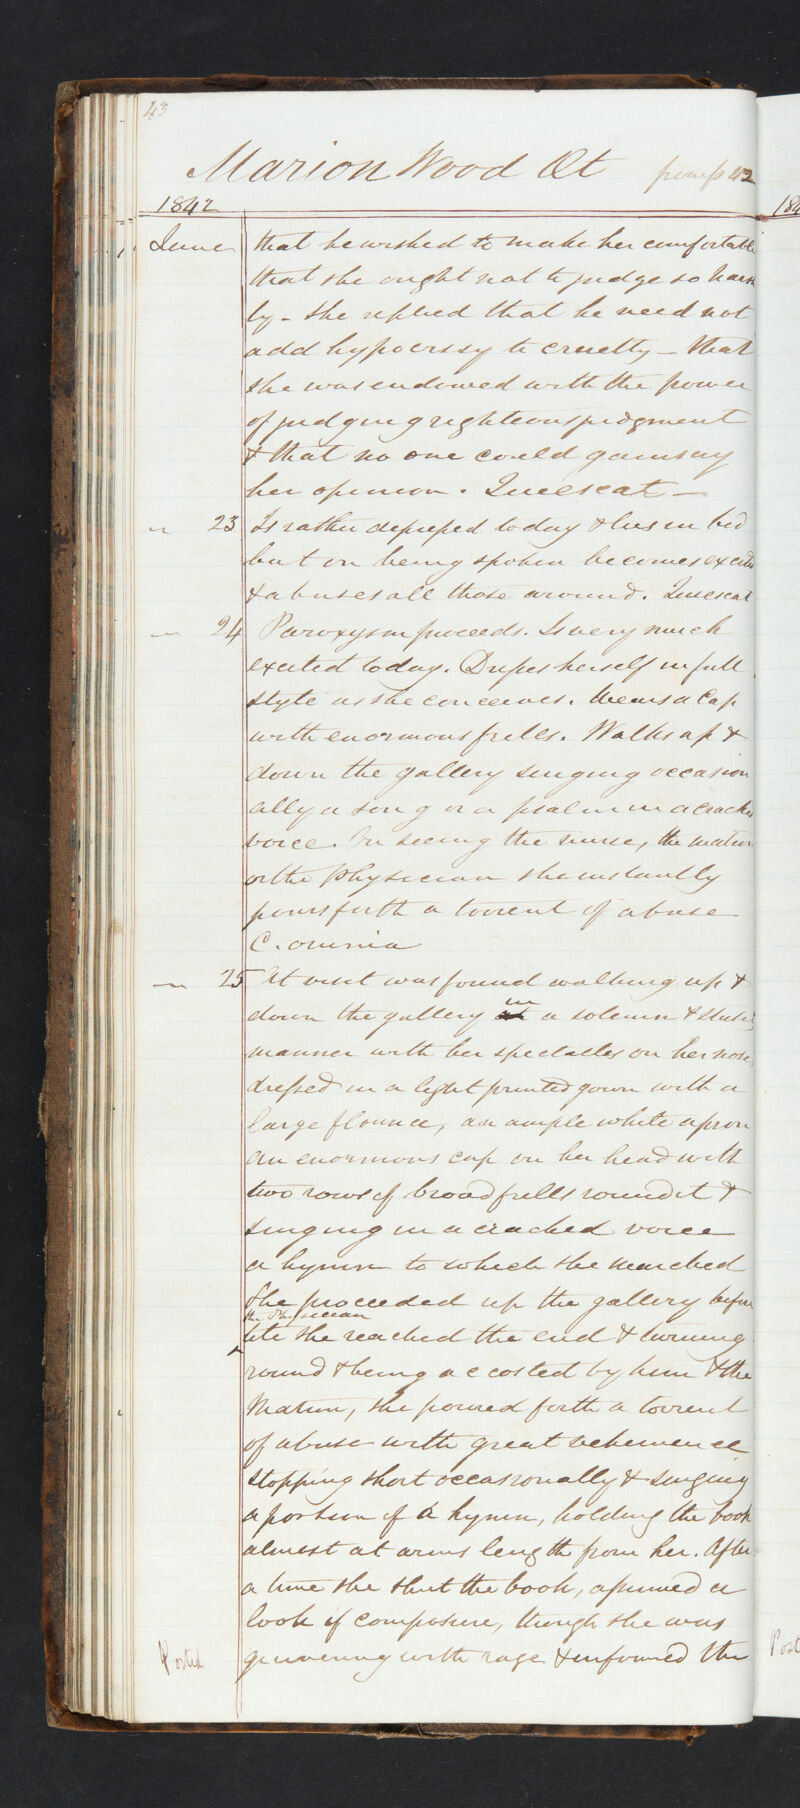 43
Marion Wood Æt from p 42
1842
June that he wished to make her comfortable
that she ought not to judge so harsh
ly - She replied that he need not
add hypocrisy to cruelty - that
she was endowed with the power
of judging righteous judgment
& that no one could gainsay
her opinion. Quiescat -
" 23 Is rather depressed today & lies in bed
but on being spoken becomes excited
& abuses all those around. Quiescat
— 24 Paroxysm proceeds. Is very much
excited today. Dresses herself in full
style as she conceives. Wears a Cap
with enormous frills. Walks up &
down the gallery singing occasion
ally a song or a psalm in a cracked
voice. On seeing the nurse, the matron
or the Physician she instantly
pours forth a torrent of abuse
C. omnia
— 25 At visit was found walking up &
down the gallery in a solemn &
manner with her spectacles on her nose,
dressed in a light printed gown with a
large flounce, an ample white apron
an enormous cap on her head with
two rows of broad frills round it &
singing in a cracked voice
a hymn to which she marched
She proceeded up the gallery before
the Physician
till she reached the end & turning
round & being accosted by him & the
Matron, she poured forth a torrent
of abuse with great vehemence
stopping short occasionally & singing
a portion of a hymn, holding the book
almost at arms length from her. After
a time she shut the book, assumed a
look of composure, though she was
quivering with rage & informed the
Posted